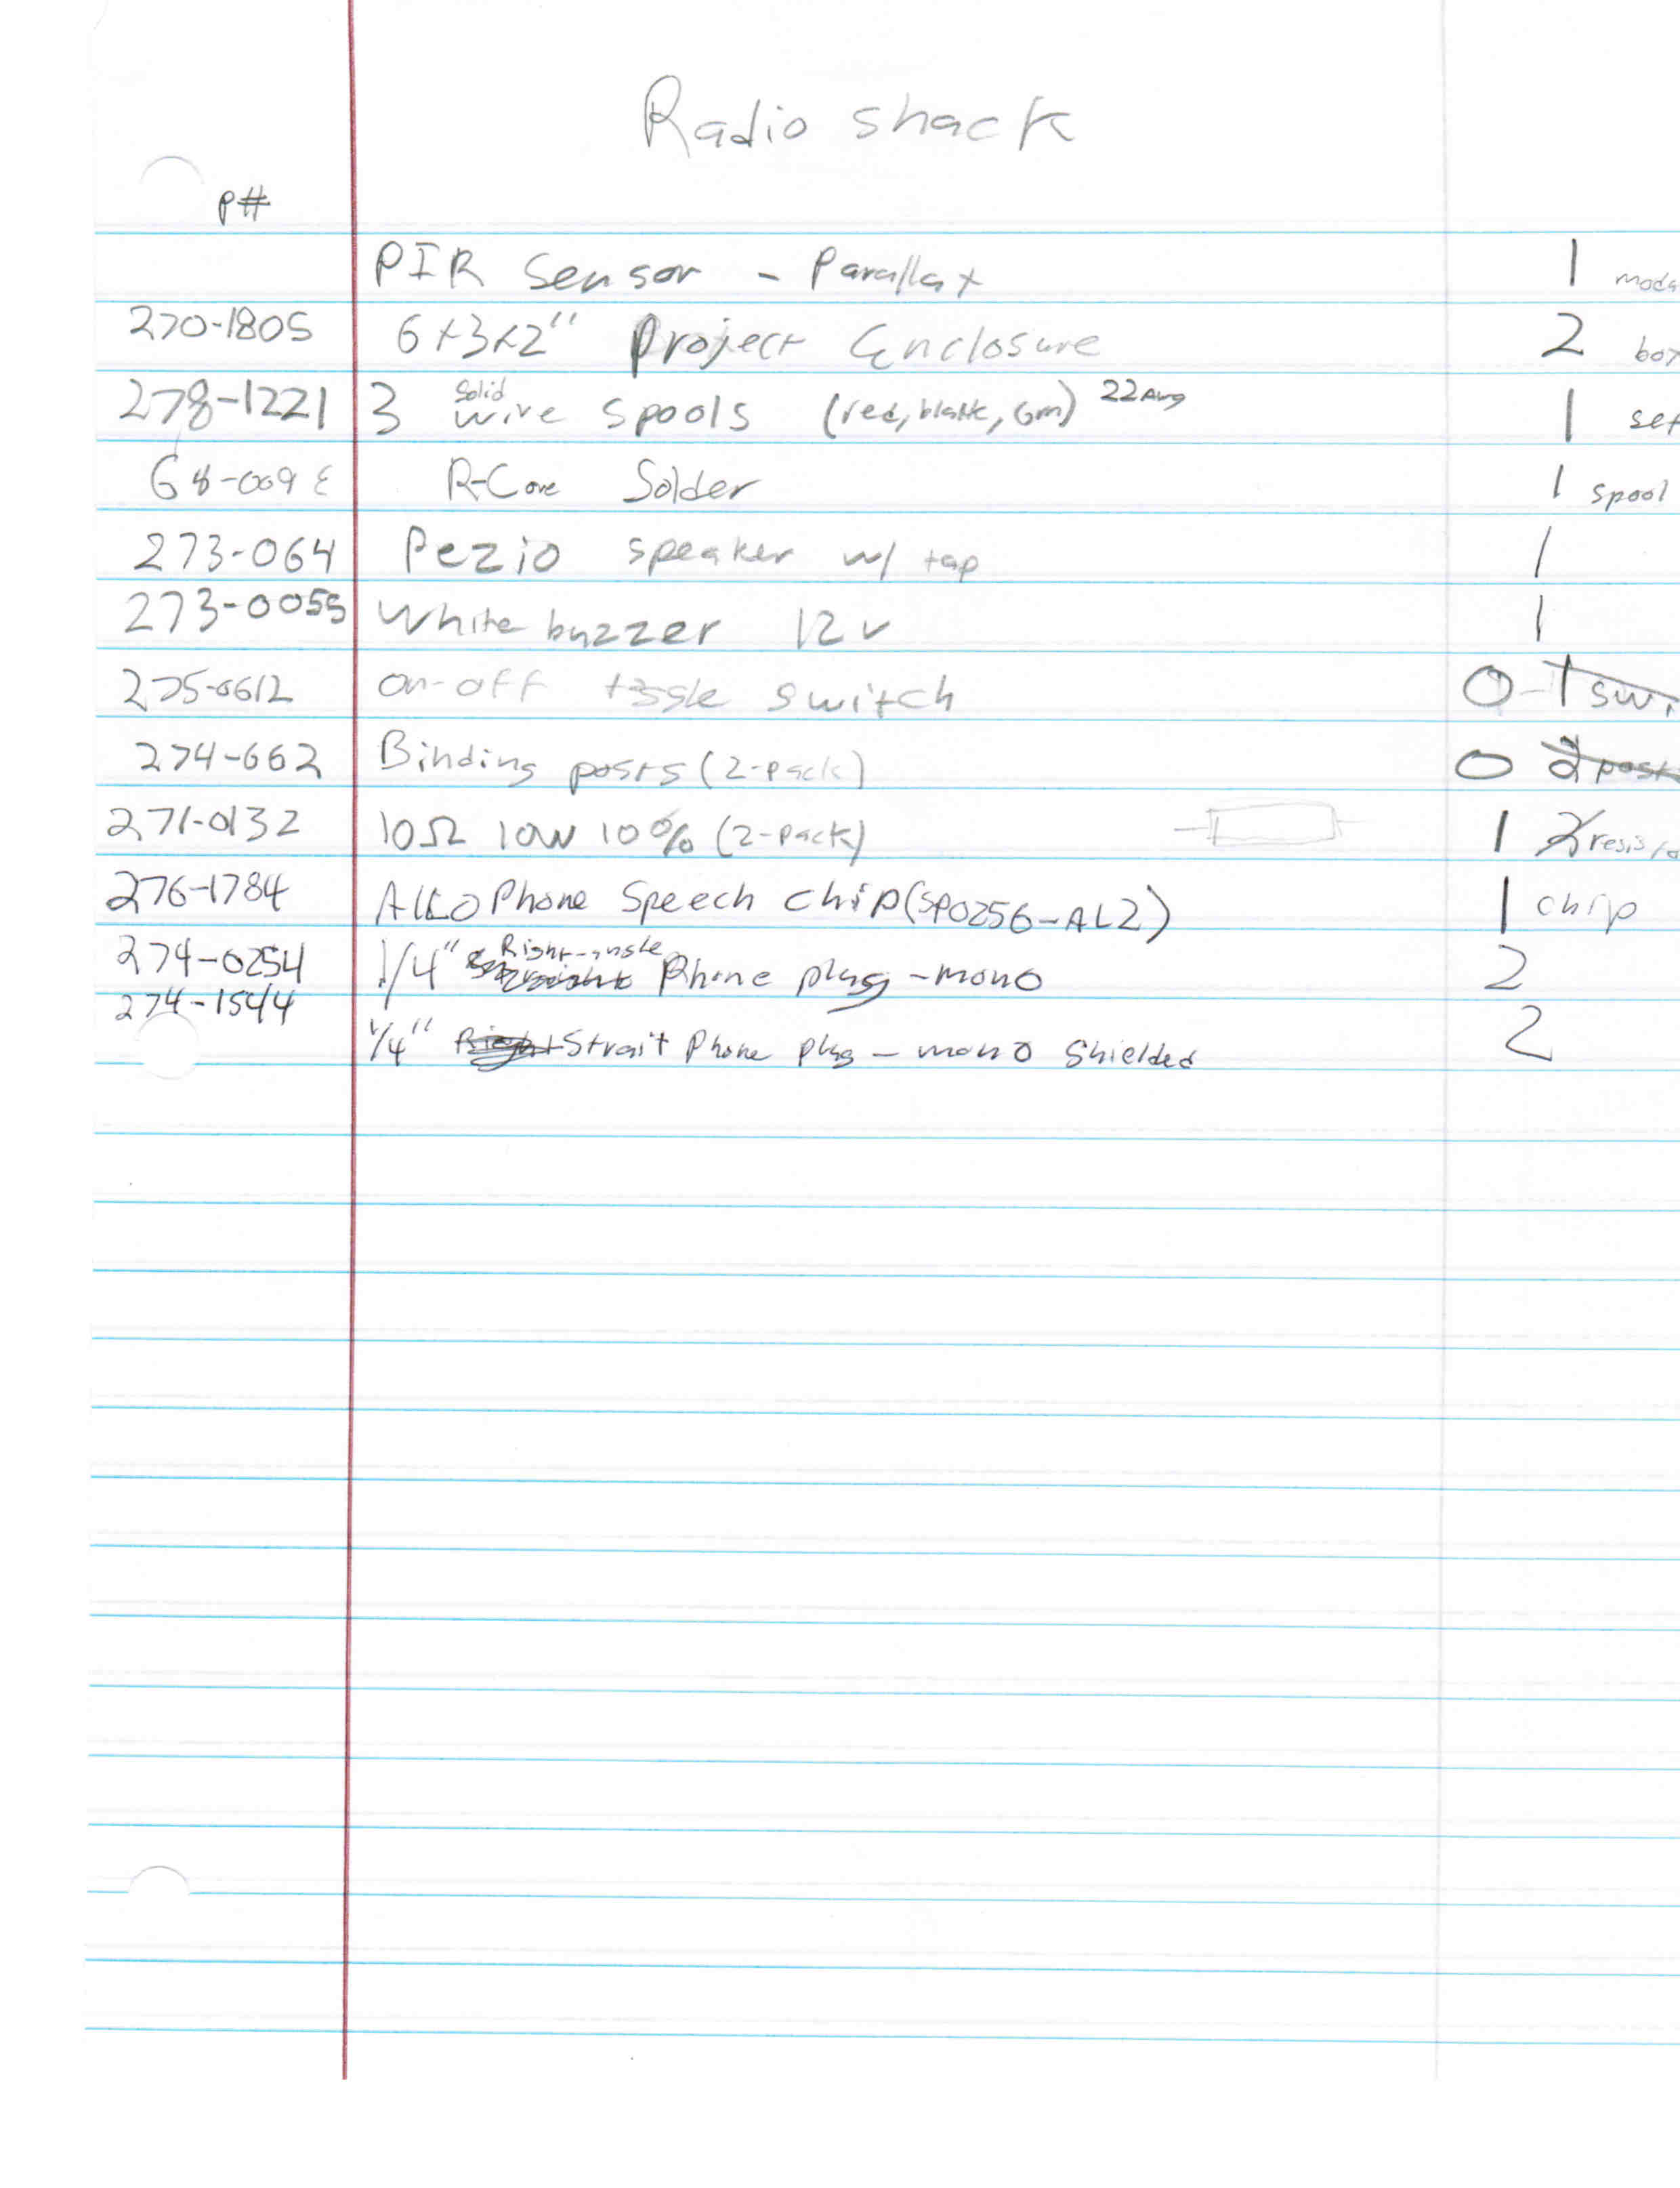 Radio shack
P#
PIR Sensor - Parallax 1
270-1805 6x3x2" Project Enclosure 2
278-1221 3 Solid wire spools (red, blak, Grn) 22 Awg 1 set
R-Core Solder 1 spool
273-064 Pezio speaker w/ tap 1
273-0055 White buzzer 12v 1
275-0612 on-off toggle switch 0
274-662 Binding posts (2-pack) 0
271-0132 10Ω 10W 10% (2-pack) 1
276-1784 Phone Speech chip (SP0256-AL2) 1 chip
274-0254 1/4" Right-angle Phone plug - mono 2
274-1544
1/4" Strait Phone plug - mono Shielded 2